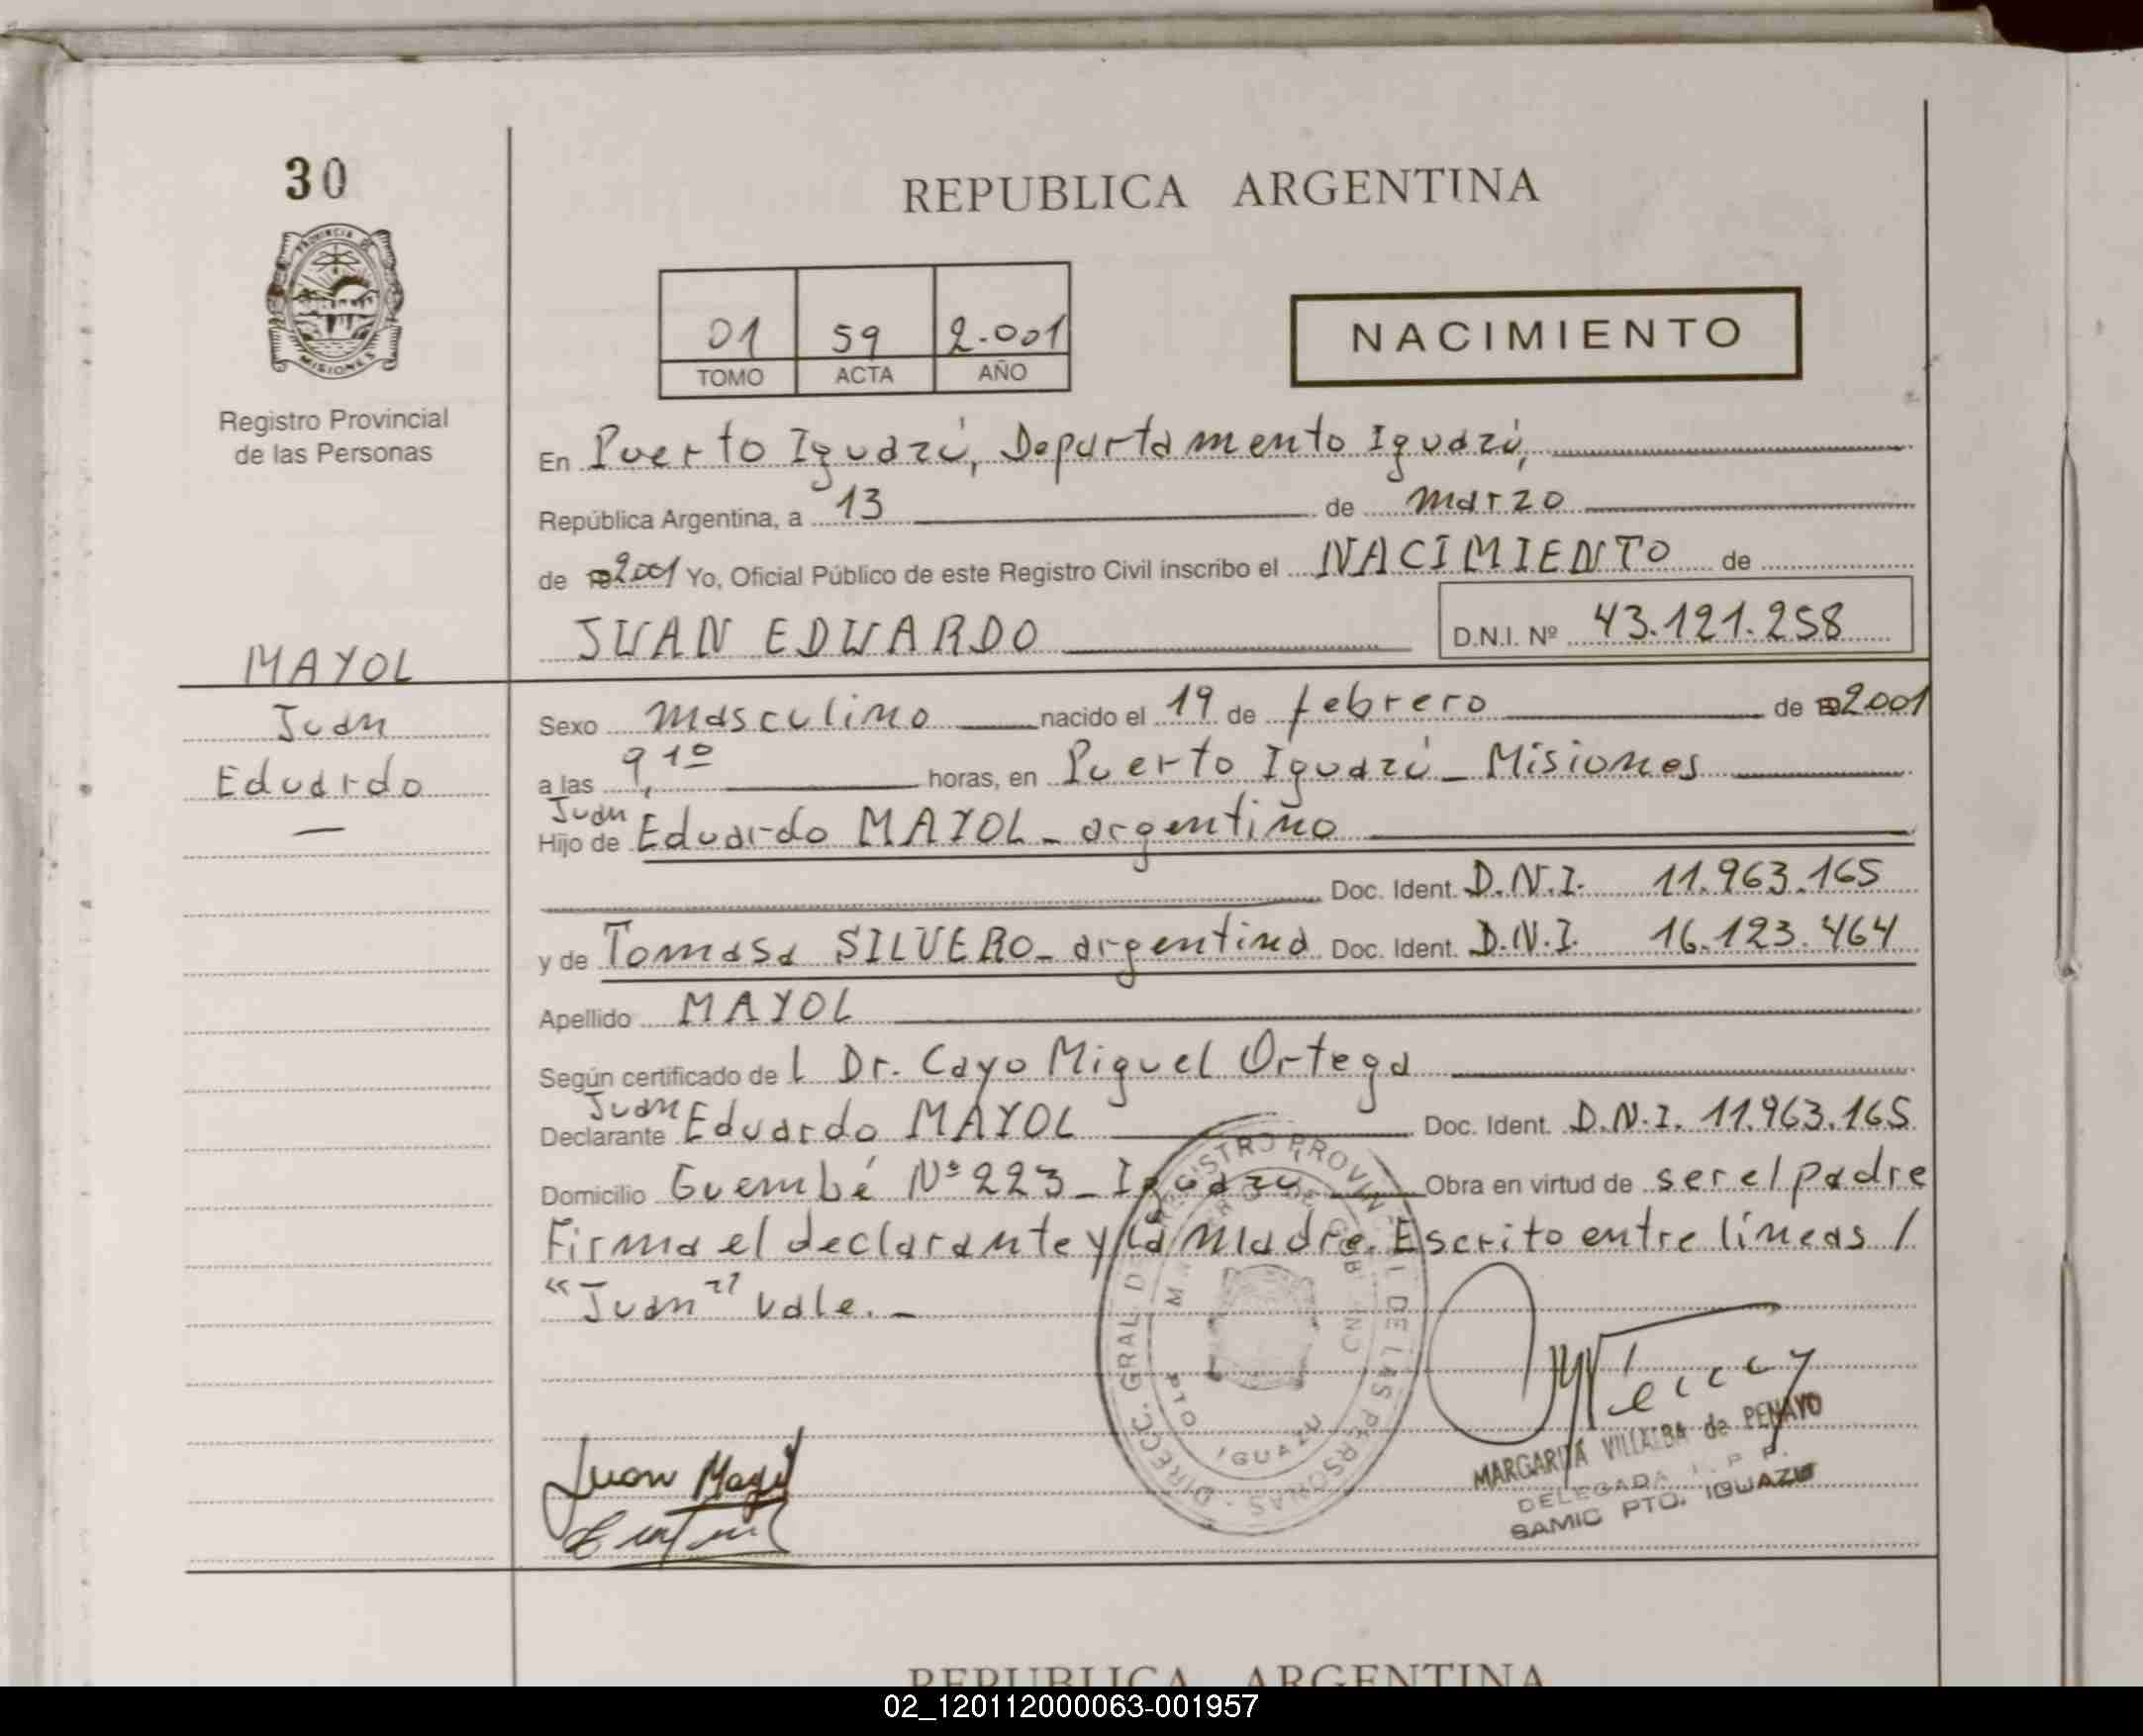 30
REPUBLICA ARGENTINA
PROVINCIA DE
MISIONES
Registro Provincial
de las Personas
01 59 2.001
TOMO ACTA AÑO
NACIMIENTO
En Puerto Iguazú, Departamento Iguazú,
República Argentina, a 13 de marzo
de 2001 Yo, Oficial Público de este Registro Civil inscribo el NACIMIENTO de
JUAN EDUARDO D.N.I. Nº 43.121.258
MAYOL
Juan
Eduardo
Sexo masculino nacido el 19 de febrero de 2001
a las 9,10 horas, en Puerto Iguazú - Misiones
Juan
Hijo de Eduardo MAYOL - argentino
Doc. Ident. D.N.I. 11.963.165
y de Tomasa SILVERO - argentina Doc. Ident. D.N.I. 16.123.464
Apellido MAYOL
Según certificado de l Dr. Cayo Miguel Ortega
Juan
Declarante Eduardo MAYOL Doc. Ident. D.N.I. 11.963.165
Domicilio Guembé Nº 223 - Iguazú Obra en virtud de ser el padre
Firma el declarante y la madre. Escrito entre líneas /
"Juan" vale. -
DIRECC. GRAL. DE REGISTRO PROVINCIAL DE LAS PERSONAS
PTO IGUAZU
Juan Mayol
MARGARITA VILLALBA de PENAYO
DELEGADA R. P. P.
SAMIC PTO. IGUAZU
REPUBLICA ARGENTINA
02_120112000063-001957